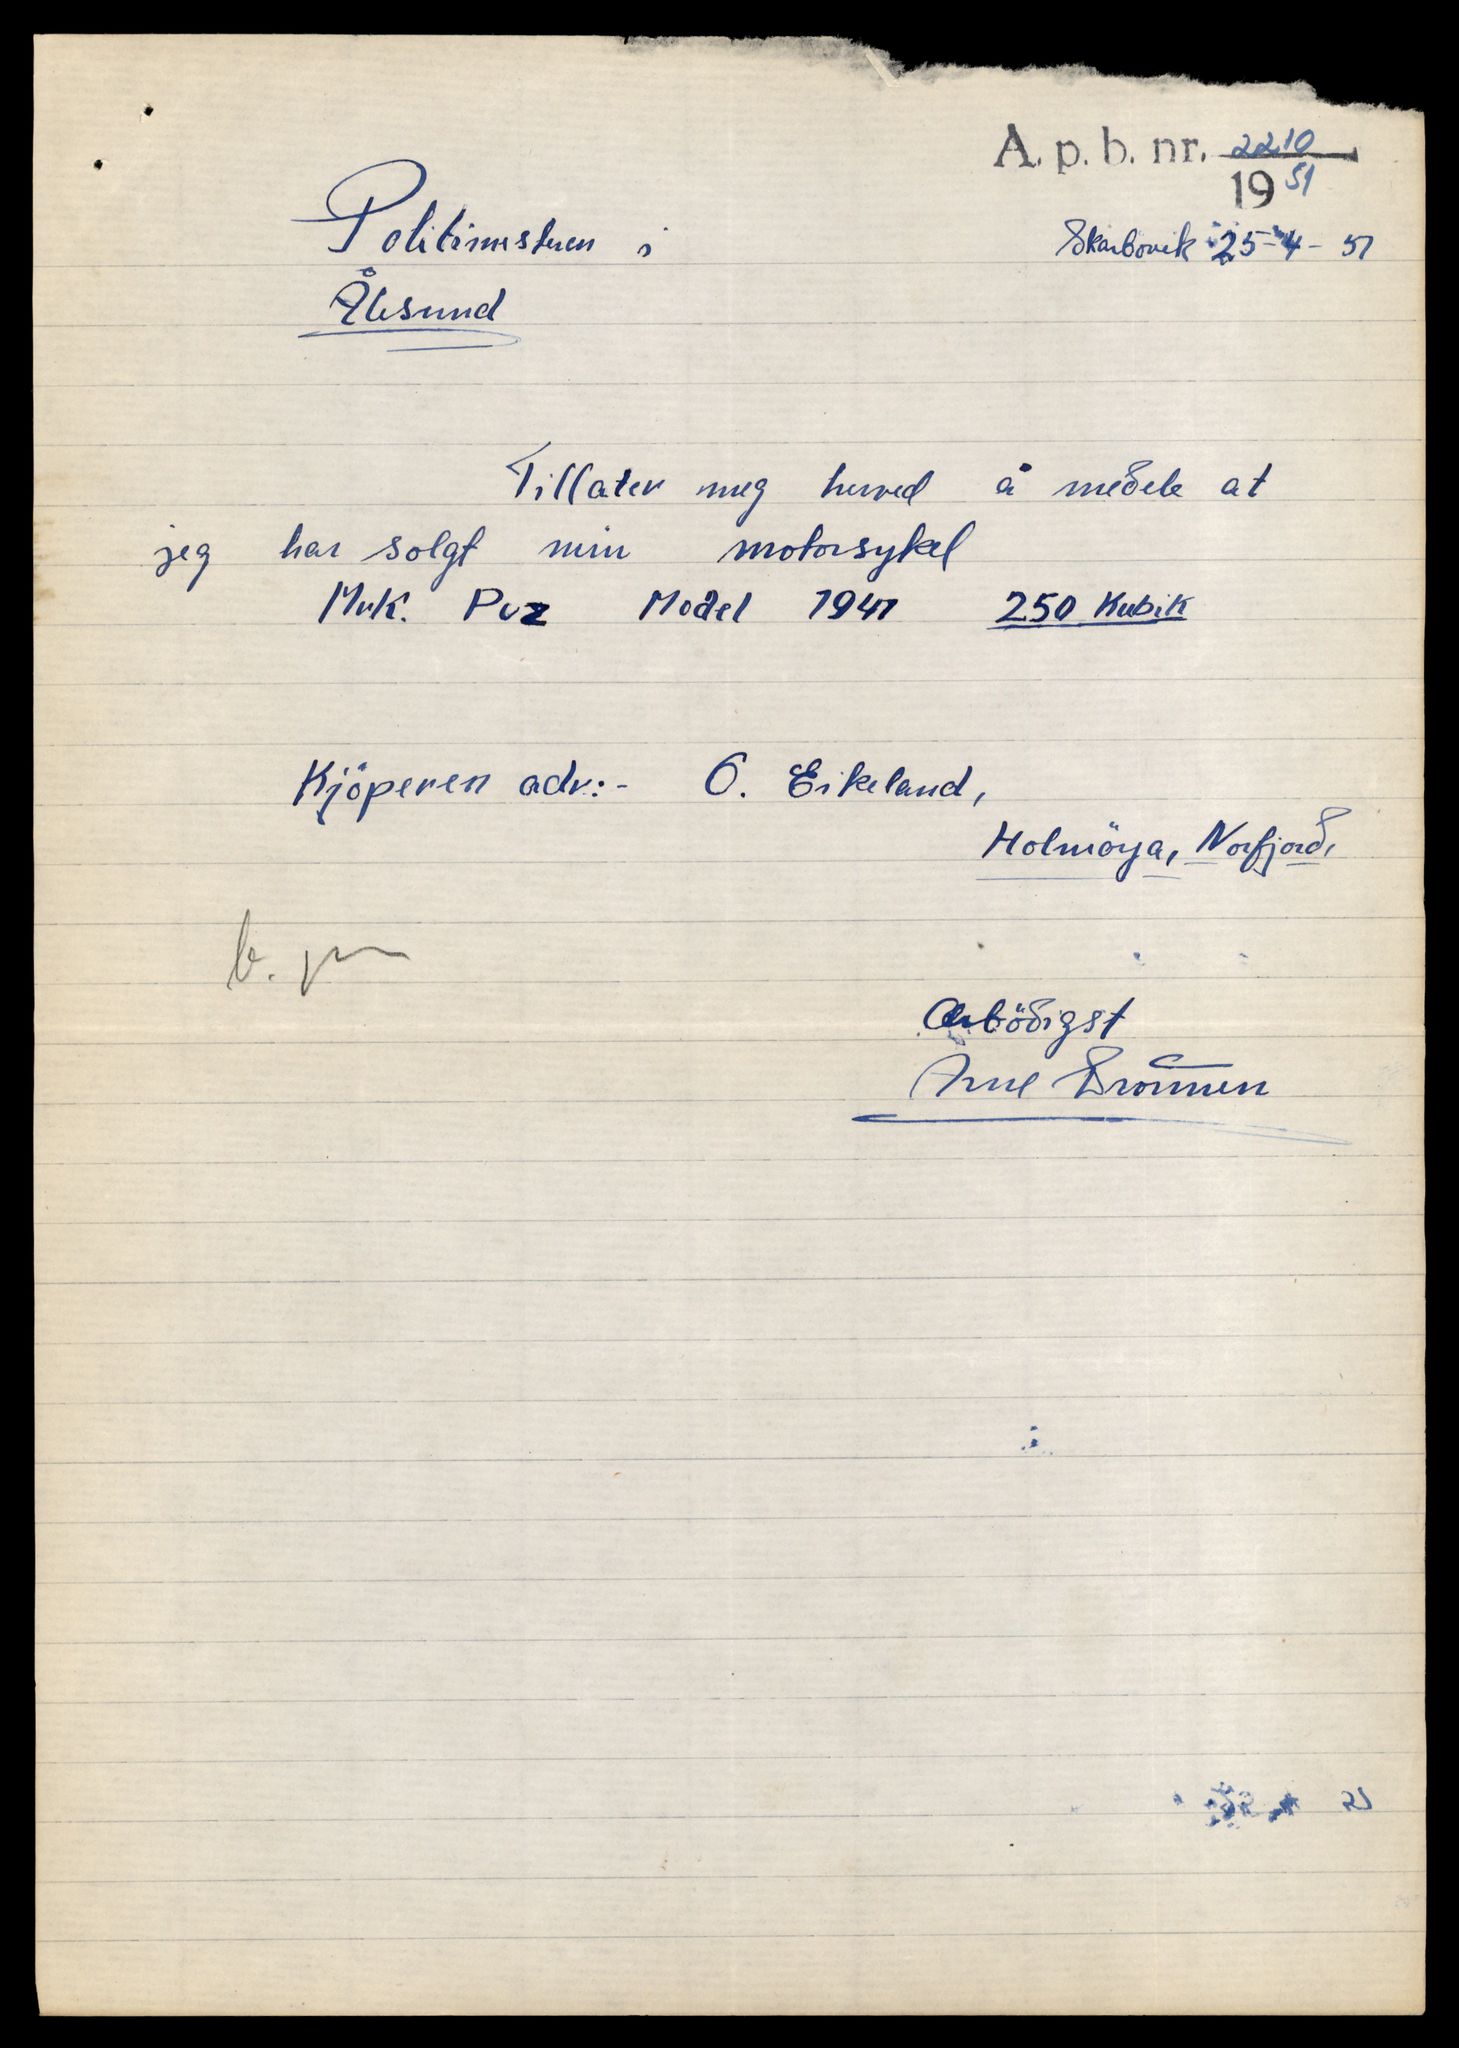 A. p. b. nr. 2210
19 51
Skarbøvik 25-4-51
Politimesteren i
Ålesund
Tillater meg herved å medele at
jeg har solgt min motorsykel
Mrk. Puz Model 1941 250 Kubik
Kjöperen adr:- O. Eikeland,
Holmöya, Norfjord,
Arbödigst
Arne